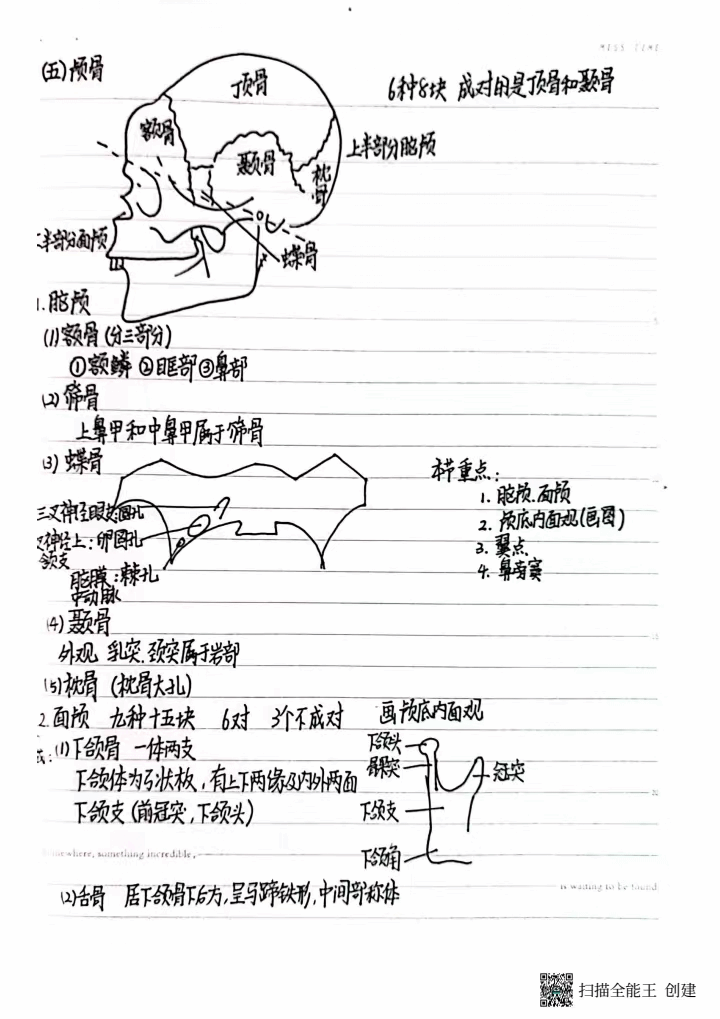 MISS TIME
(五)颅骨
6种8块 成对的是顶骨和颞骨
顶骨
额骨
颞骨
枕骨
上半部分脑颅
半部分面颅
蝶骨
1.脑颅
(1)额骨(分三部分)
①额鳞 ②眶部③鼻部
(2)筛骨
上鼻甲和中鼻甲属于筛骨
(3)蝶骨
本节重点:
1. 脑颅.面颅
2. 颅底内面观(画图)
3. 翼点.
4. 鼻旁窦
三叉神经眼支:圆孔
叉神经上:卵圆孔
颌支
脑膜:棘孔
中动脉
(4)颞骨
外观 乳突.颈突属于岩部
(5)枕骨 (枕骨大孔)
2.面颅 九种十五块 6对 3个不成对 画颅底内面观
(1)下颌骨 一体两支
下颌体为弓状板,有上下两缘及内外两面
下颌支(前冠突,下颌头)
下颌头
髁突
冠突
下颌支
下颌角
somewhere, something incredible,
is waiting to be found
(2)舌骨 居下颌骨下后方,呈马蹄铁形,中间部称体
扫描全能王 创建